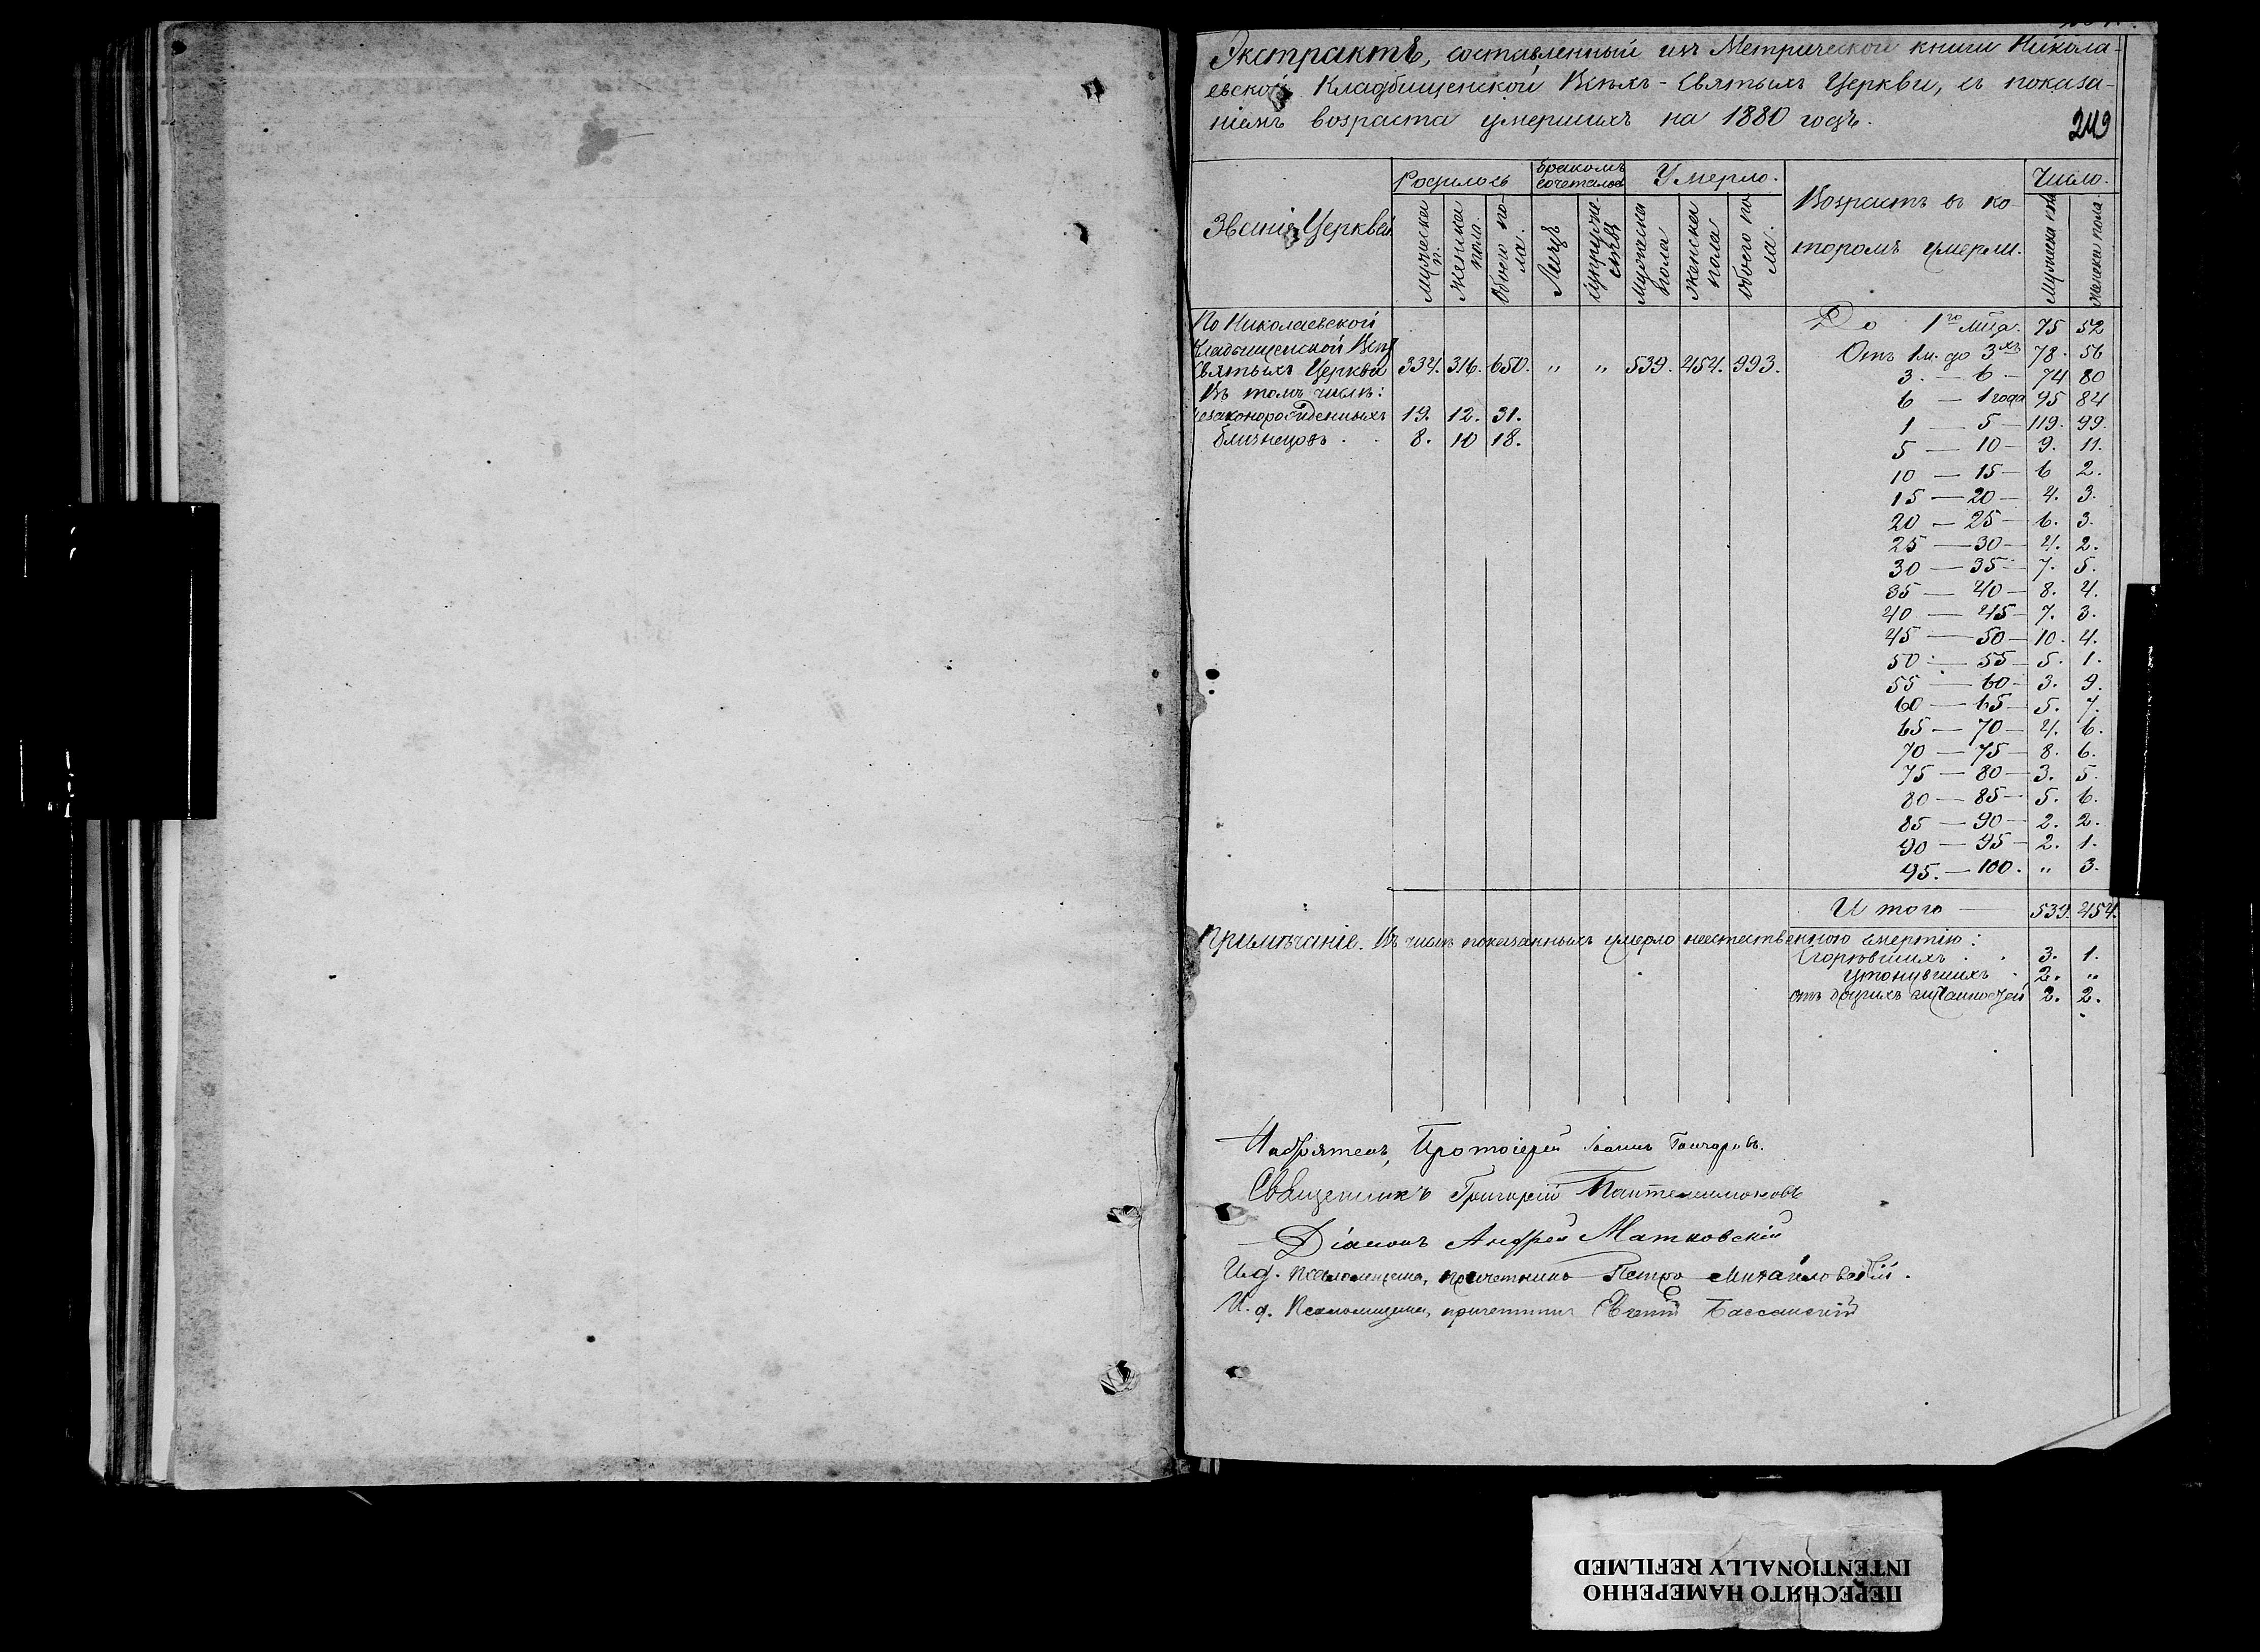 Экстрактъ, составленный изъ Метрической книги Никола-
евской Кладбищенской Всѣхъ-Святыхъ Церкви, съ показа-
ніемъ возраста умершихъ на 1880 годъ.
249
Званіе Церквей
Родилось
Бракомъ сочеталось
Умерло.
Возрастъ въ ко-
торомъ умерли.
Число.
Мужеска п.
Женска пола.
Обоего по-
ла.
Лицъ
Супруже-
ствъ
Мужеска пола
Женска пола
Обоего по-
ла.
Мужеска пола
Женска пола.
По Николаевской
Кладбищенской Всѣхъ
Святыхъ Церкви 334. 316. 650. " " 539. 454. 993.
Въ томъ числѣ:
незаконорожденныхъ 19. 12. 31.
близнецовъ . . 8. 10 18.
До 1го мца. 75 52
Отъ 1 м. до 3хъ 78. 56
3. — 6 — 74 80
6 — 1 года 95 84
1 — 5 — 119. 99.
5 — 10 — 9. 11.
10 — 15 — 6 2.
15 — 20 — 4. 3.
20 — 25 — 6. 3.
25 — 30 — 4. 2.
30 — 35 — 7. 5.
35 — 40 — 8. 4.
40 — 45 — 7. 3.
45 — 50 — 10. 4.
50 — 55 — 5. 1.
55 — 60 — 3. 9.
60 — 65 — 5. 7.
65 — 70 — 4. 6.
70 — 75 — 8. 6.
75 — 80 — 3. 5.
80 — 85 — 5. 6.
85 — 90 — 2. 2.
90 — 95 — 2. 1.
95. — 100. " 3.
Итого — 539. 454.
Примѣчаніе. Въ числѣ показанныхъ умерло неестественною смертію:
Сгорѣвшихъ . . 3. 1.
Утонувшихъ . 2. "
отъ другихъ случайностей 2. 2.
Протоіерей Іоаннъ Гончаровъ.
Священникъ Григорій Пантелеимоновъ
Діаконъ Андрей Матковскій
И.д. псаломщика, причетникъ Петръ Михайловскій.
И. д. Псаломщика, причетникъ Евгеній
ПЕРЕСНЯТО НАМЕРЕННО
INTENTIONALLY REFILMED